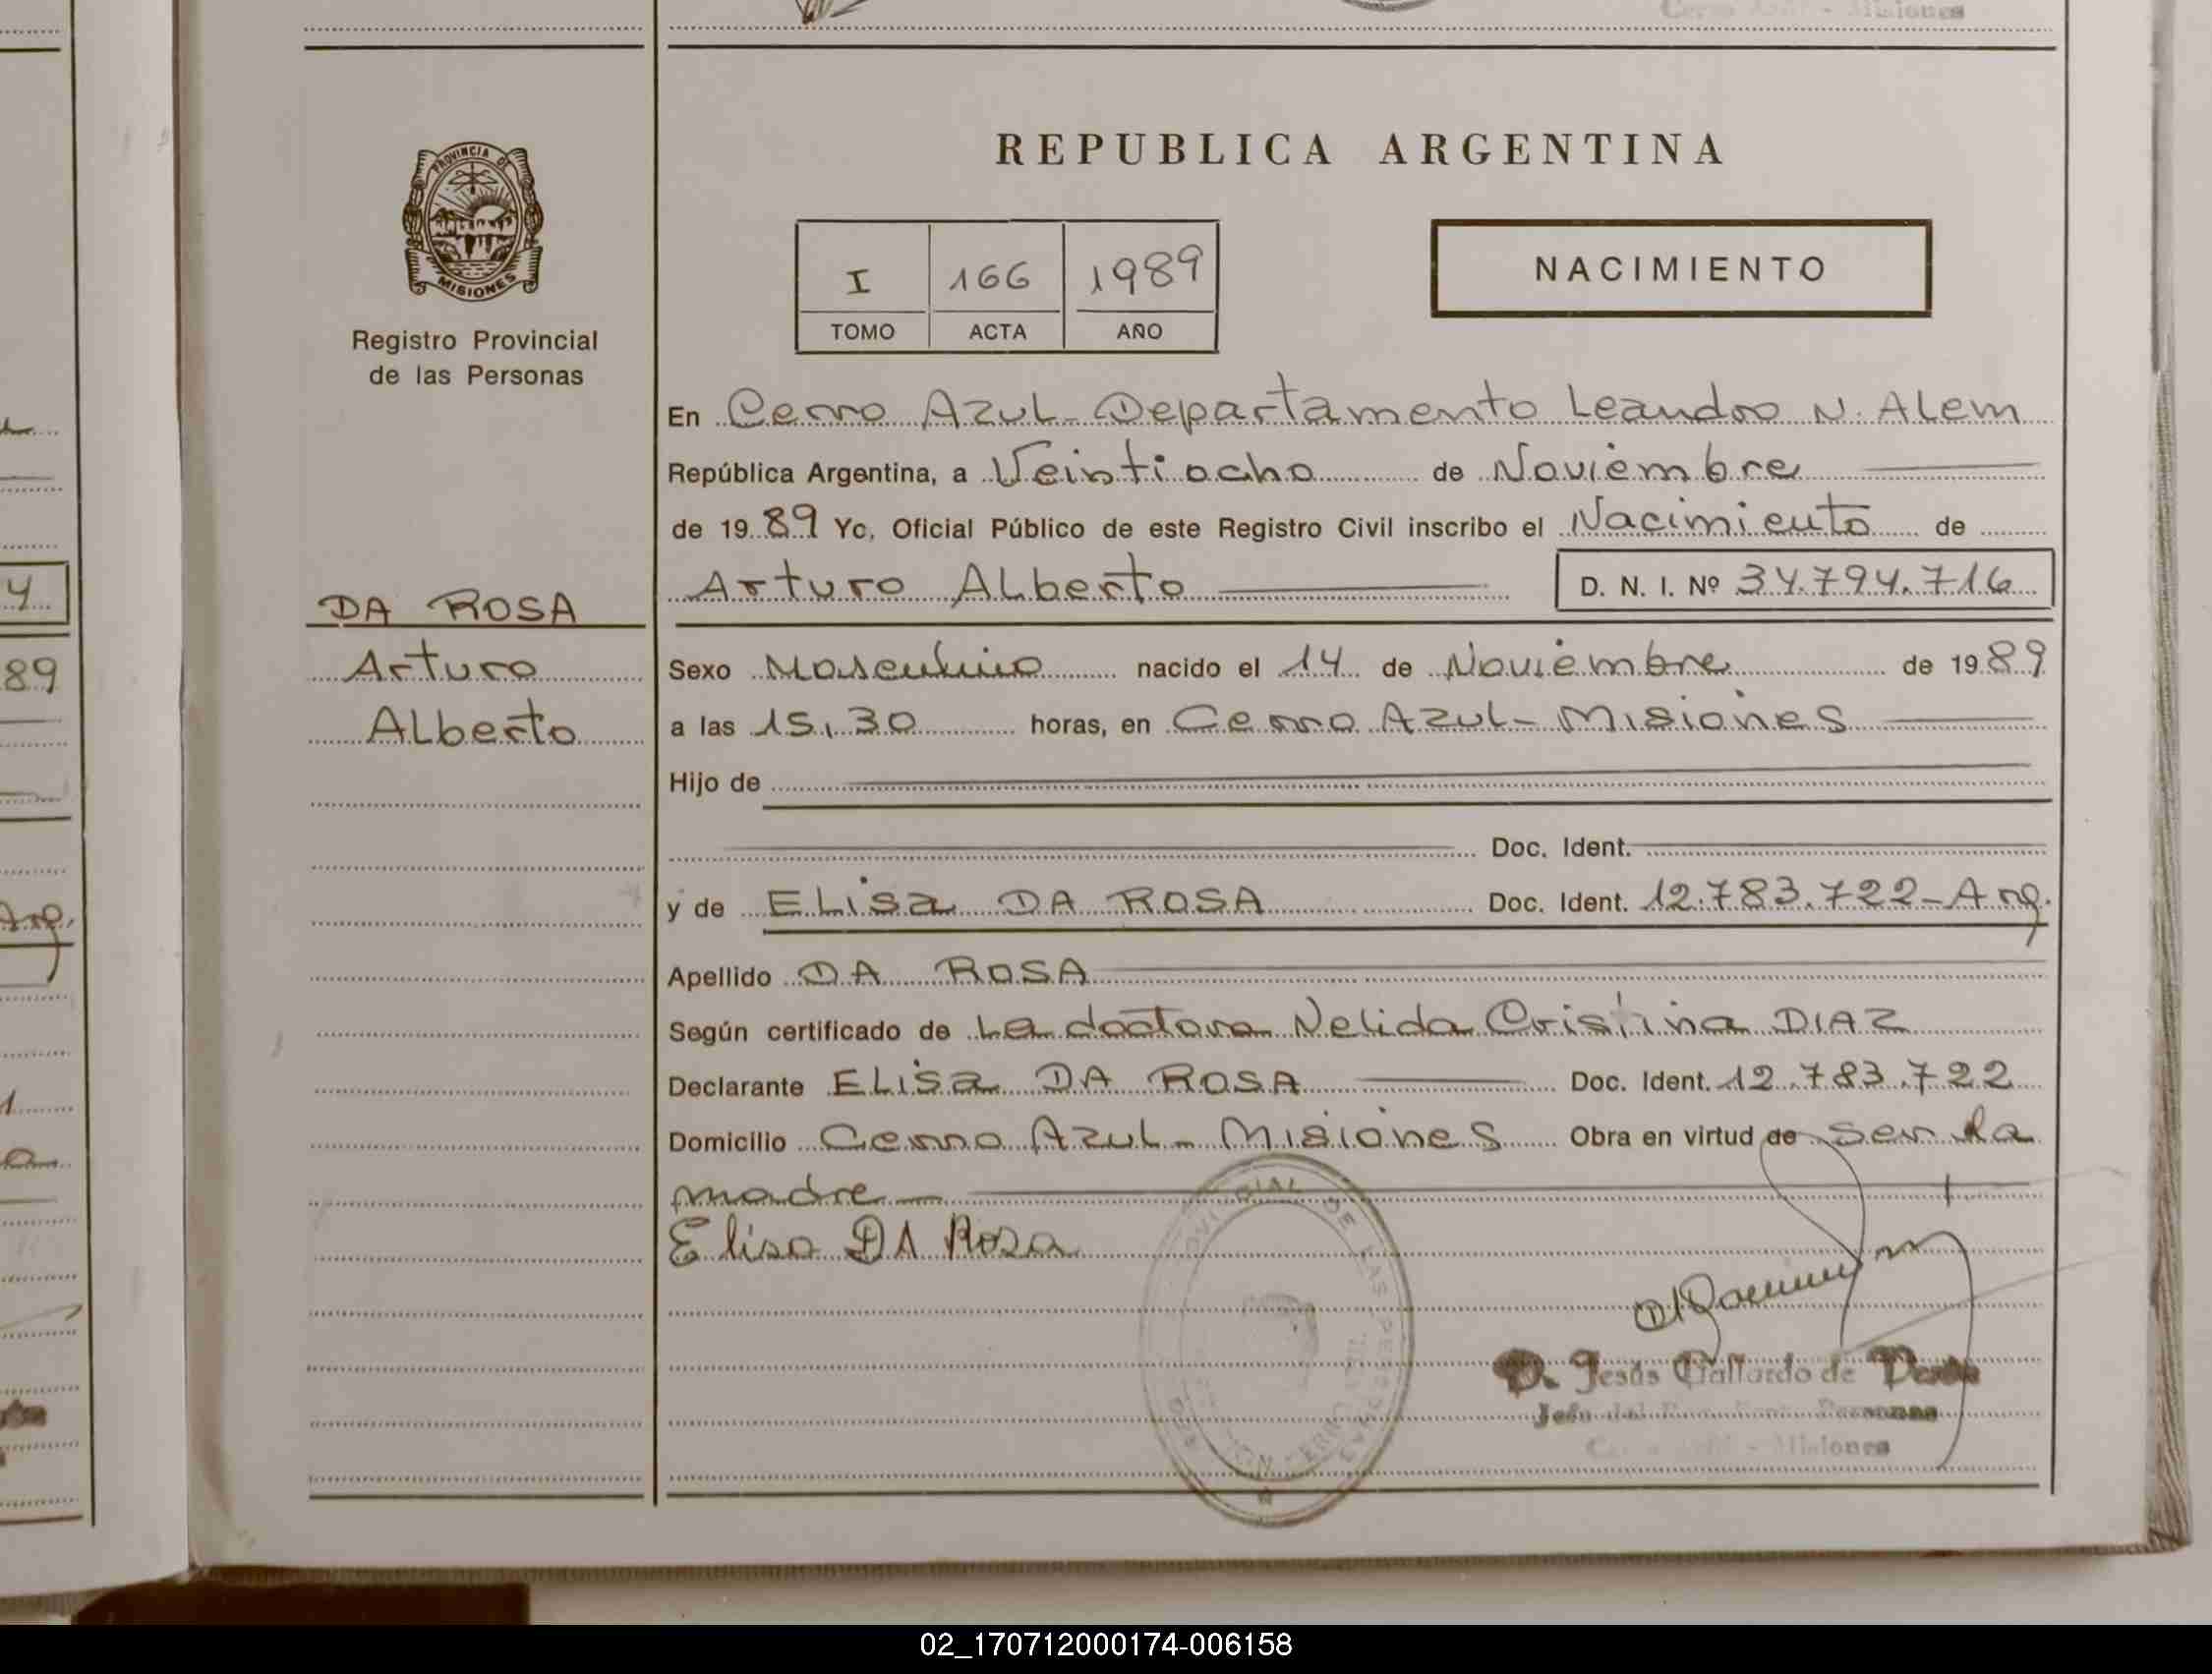 Cerro Azul - Misiones
PROVINCIA DE
MISIONES
Registro Provincial
de las Personas
REPUBLICA ARGENTINA
I 166 1989
TOMO ACTA AÑO
NACIMIENTO
En Cerro Azul - Departamento Leandro N. Alem
República Argentina, a Veintiocho de Noviembre
de 1989 Yo, Oficial Público de este Registro Civil inscribo el Nacimiento de
Arturo Alberto D. N. I. Nº 34.794.716
DA ROSA
Arturo
Alberto
Sexo Masculino nacido el 14 de Noviembre de 1989
a las 15,30 horas, en Cerro Azul - Misiones
Hijo de
Doc. Ident.
y de Elisa DA ROSA Doc. Ident. 12.783.722 - Arg.
Apellido DA ROSA
Según certificado de la doctora Nelida Cristina DIAZ
Declarante Elisa DA ROSA Doc. Ident. 12.783.722
Domicilio Cerro Azul - Misiones Obra en virtud de ser la
madre
Elisa DA Rosa
D. Jesús Gallardo de
Misiones
4
89
Arg.
02_170712000174-006158